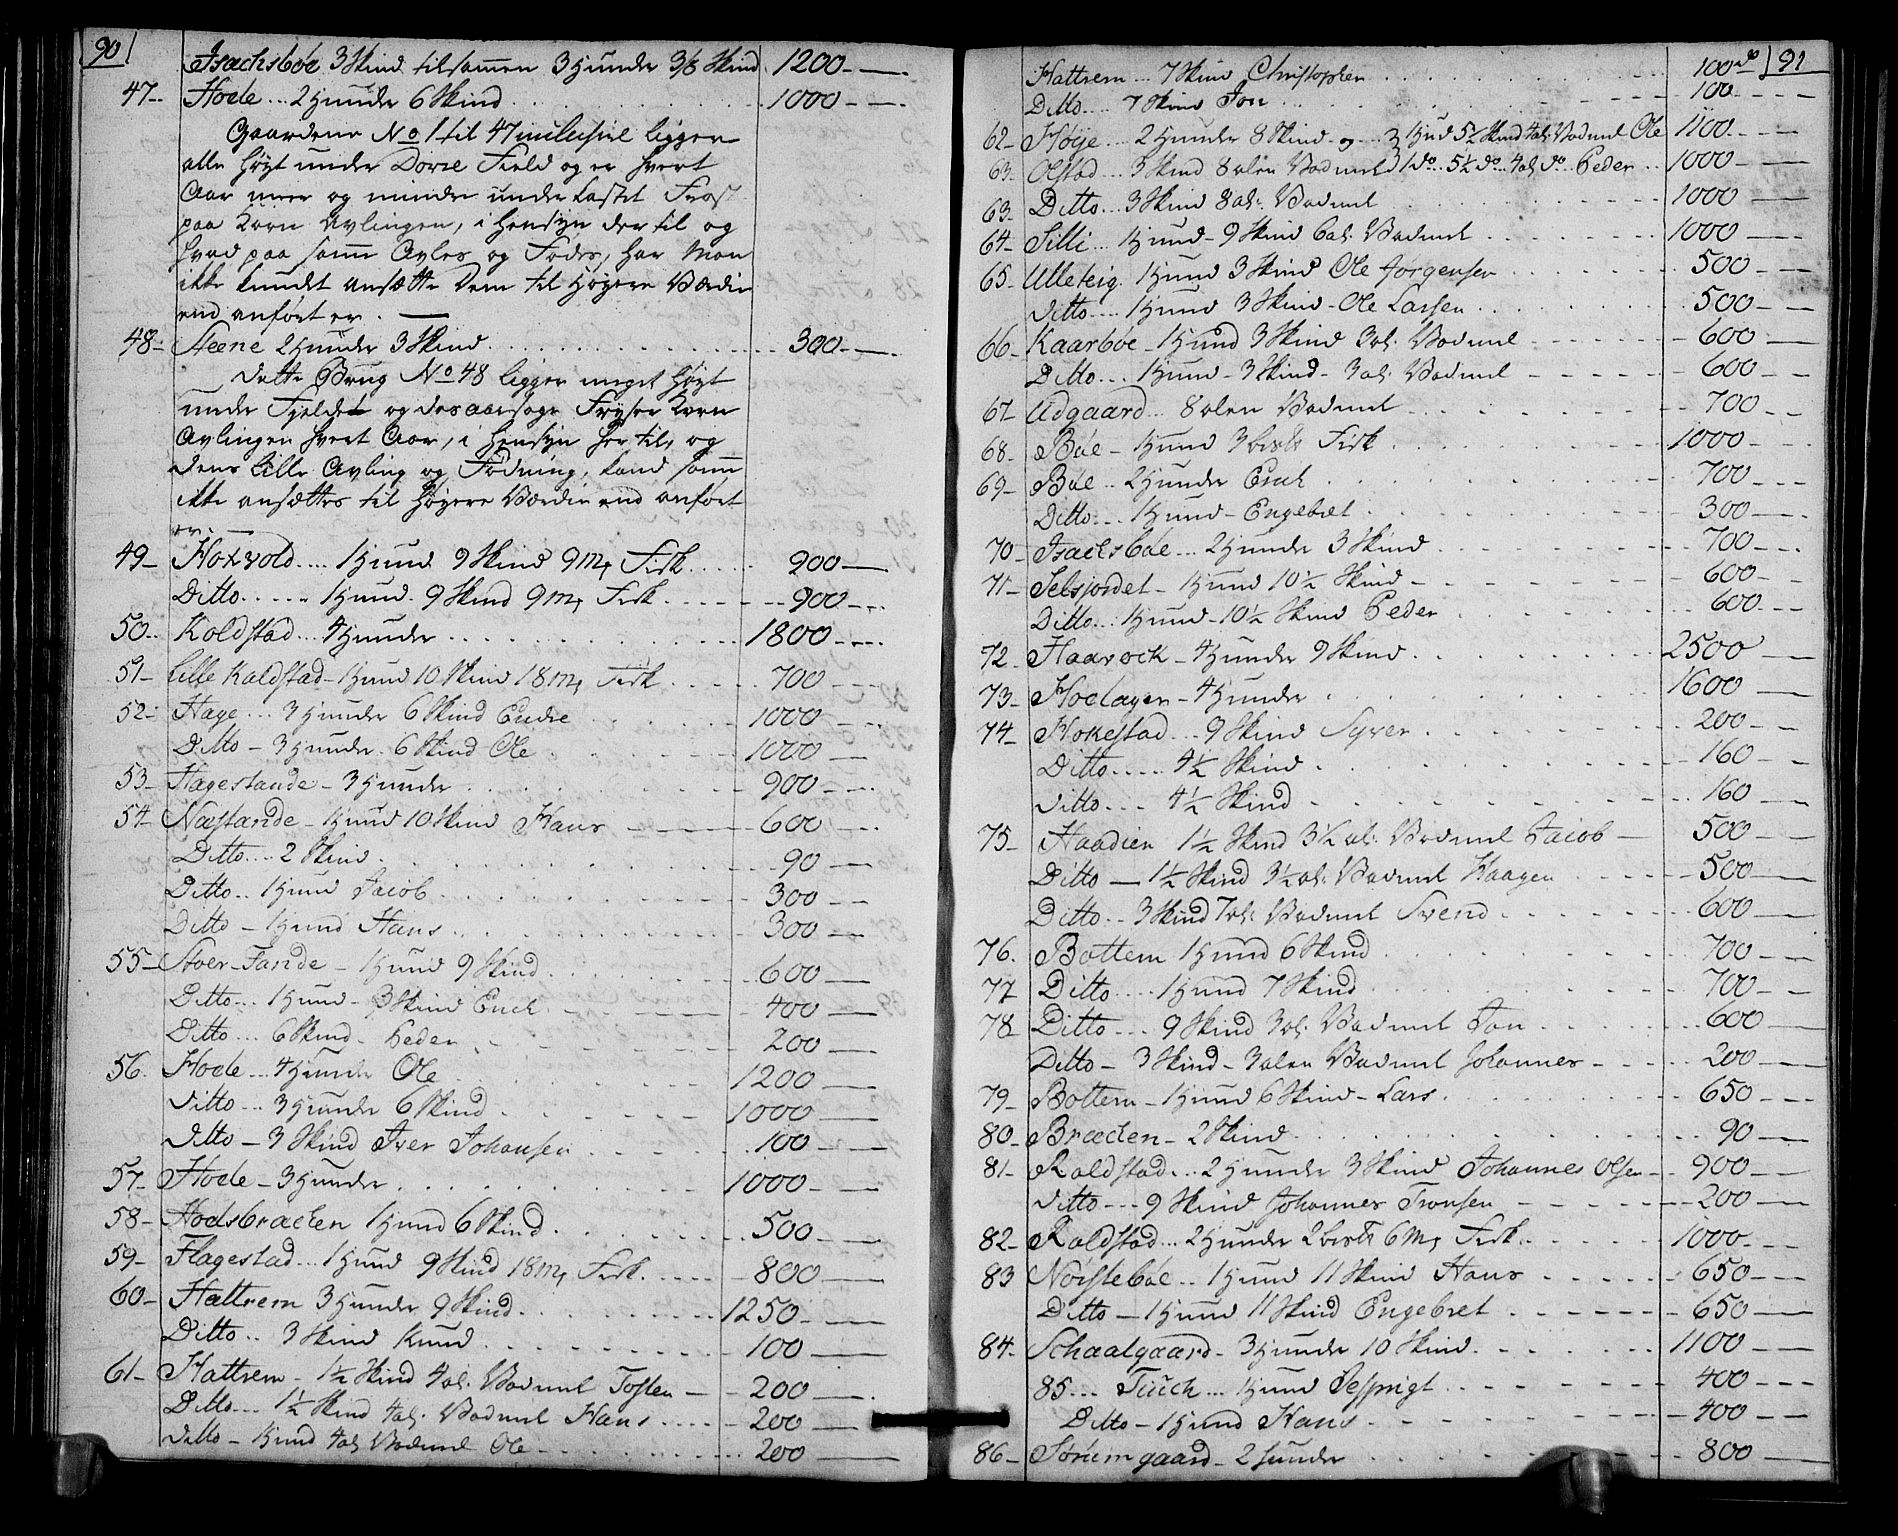 90
Isachsbøe 3 Skind tilsamen 3 Hunder 3/6 Skind. 1200
47 Hoele 2 Hunder 6 Skind 1000
Gaardene No 1 til 47 inclusive ligger
alle høyt under Dovre Field og er hvert
Aar meer og mindre underkastet Frost
paa Korn Avlingen, i Hensyn der til og
hvad paa samme Avles og Fødes, har Man
ikke kundet ansætte dem til høyere Værdie
end anført er.
48 Steene 2 Hunder 3 Skind 300
Dette Brug No 48 ligger meget høyt
under Fjeldet og desaarsage Fryser Korn
Avlingen hvert Aar, i Hensyn her til, og
dens Lille Avling og Fødning, kand samme
ikke ansættes til høyere Værdie end anført
er.
49 1 Hund 9 Skind 9 Mk Fisk 900
Ditto 1 Hund 9 Skind 9 Mk Fisk 900
50 Koldstad 4 Hunder 1800
51 Lille Kaldstad 1 Hund 10 Skind 18 Mk Fisk 700
52 Hage 3 Hunder 6 Skind Endre 1000
Ditto 3 Hunder 6 Skind Ole 1000
53 Hagestande 3 Hunder 900
54 Næstande 1 Hund 10 Skind Hans 600
Ditto 2 Skind 90
Ditto 1 Hund Jacob 300
Ditto 1 Hund Hans 300
55 Stoer-Tande 1 Hund 9 Skind 600
Ditto 1 Hund 3 Skind Erich 400
Ditto 6 Skind Peder 200
56 Hoele 4 Hunder Ole 1200
Ditto 3 Hunder 6 Skind 1000
Ditto 3 Skind Iver Johansen 100
57 Hoele 3 Hunder 1000
58 Hodsbræcken 1 Hund 6 Skind 500
59 Flagestad 1 Hund 9 Skind 18 Mk Fisk 800
60 Hattrem 3 Hunder 9 Skind 1250
Ditto 3 Skind Knud 100
61 Hattrem 1½ Skind 4 al. Vadmel Tosten 200
Ditto 1½ Skind 4 al. Vadmel Hans 200
Ditto 1 Hund 4 al. Vadmel Ole 200
91
Hattrem 7 Skind Christopher 100
Ditto 7 Skind Jon 100
62 Høije 2 Hunder 8 Skind og 3 Hud 5½ Skind 4 al. Vadmel Ole 1100
63 Olstad 3 Skind 8 alen Vadmel 1 do 5½ do 4 al. do Peder 1000
63 Ditto 3 Skind 8 al. Vadmel 1000
64 Silli 1 Hund 9 Skind 6 al. Vadmel 1000
65 Ulleteig 1 Hund 3 Skind Ole Jørgensen 500
Ditto 1 Hund 3 Skind Ole Larsen 500
66 Kaarbøe 1 Hund 3 Skind 3 al. Vadmel 600
Ditto 1 Hund 3 Skind 3 al. Vadmel 600
67 Udgaard 8 alen Vadmel 700
68 Bøe 1 Hund 3 Fisk 1000
69 Bøe 2 Hunder Erich 700
Ditto 1 Hund Engebret 300
70 Isachsbøe 2 Hunder 3 Skind 700
71 Selsjordet 1 Hund 10½ Skind 600
Ditto 1 Hund 10½ Skind Peder 600
72 Haavock 4 Hunder 9 Skind 2500
73 Hoelagen 4 Hunder 1600
74 Hokestad 9 Skind Syver 200
Ditto 4½ Skind 160
Ditto 4½ Skind 160
75 Haadien 1½ Skind 3½ al. Vadmel Jacob 500
Ditto 1½ Skind 3½ al. Vadmel Haagen 500
Ditto 3 Skind 7 al. Vadmel Svend 600
76. Bottem 1 Hund 6 Skind 700
77 Ditto 1 Hund 7 Skind 700
78 Ditto 9 Skind 3 al. Vadmel Jon 600
Ditto 3 Skind 3 alen Vadmel Johannes 200
79 Bottem 1 Hund 6 Skind Lars 650
80 Bræcken 2 Skind 90
81 Roldstad 2 Hunder 3 Skind Johannes Olsen 900
Ditto 9 Skind Johannes Tronsen 200
82 Roldstad 2 Hunder 2 6 Mk Fisk 1000
83 Nørstebøe 1 Hund 11 Skind Hans 650
Ditto 1 Hund 11 Skind Engebret 650
84 Schaalgaard 3 Hunder 10 Skind 1100
85 Tuch 1 Hund 400
Ditto 1 Hund Hans 400
86 Sørumgaard 2 Hunder 800